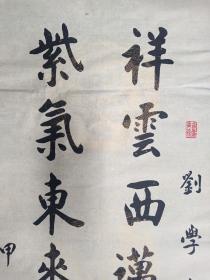 劉學
祥雲西邁
紫氣東來
甲